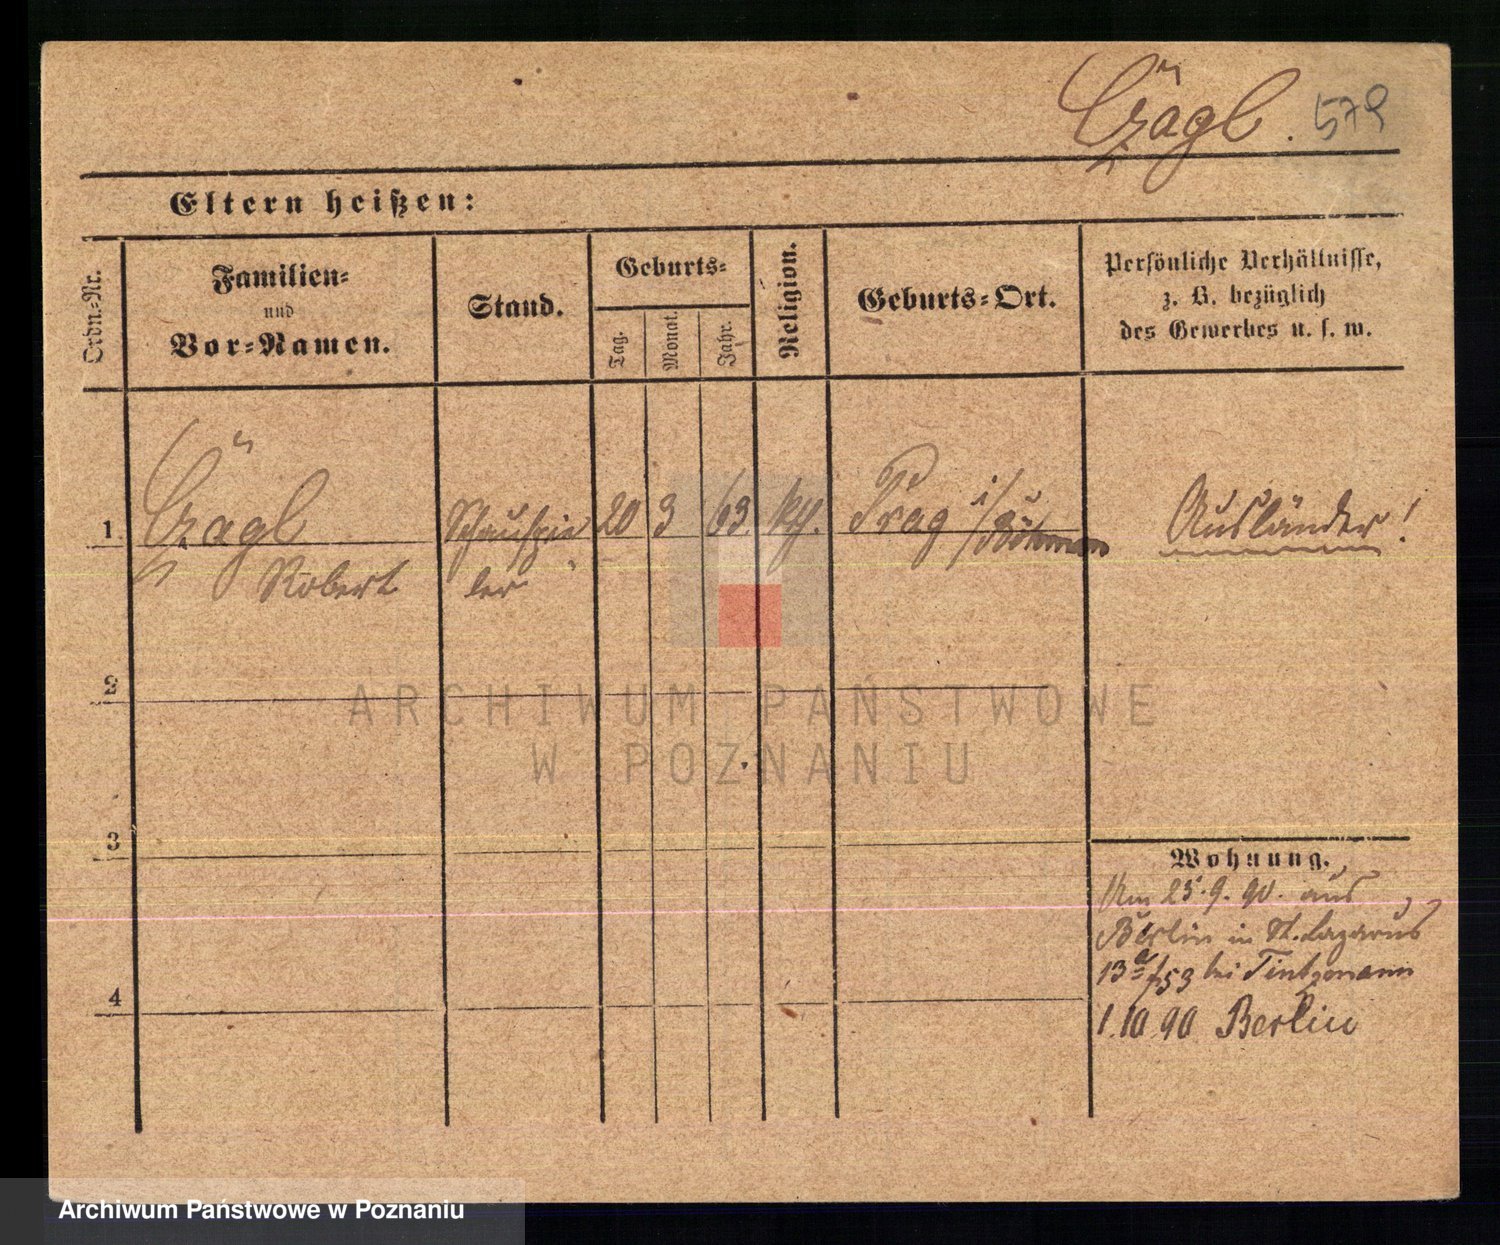 Czägl. 579
Eltern heißen:
Ordn.-Nr.
Familien-
und
Vor-Namen.
Stand.
Geburts-
Tag.
Monat.
Jahr.
Religion.
Geburts-Ort.
Persönliche Verhältnisse,
z. B. bezüglich
des Gewerbes u. s. w.
1 Czägl Schauspie 20 3 63. kth. Prag i/Böhmen Ausländer!
Robert ler
2
ARCHIWUM PAŃSTWOWE
W POZNANIU
3
Wohnung.
Am 25.9.90. aus
Berlin in St. Lazarus
13a/53 bei
4
1.10.90 Berlin
Archiwum Państwowe w Poznaniu